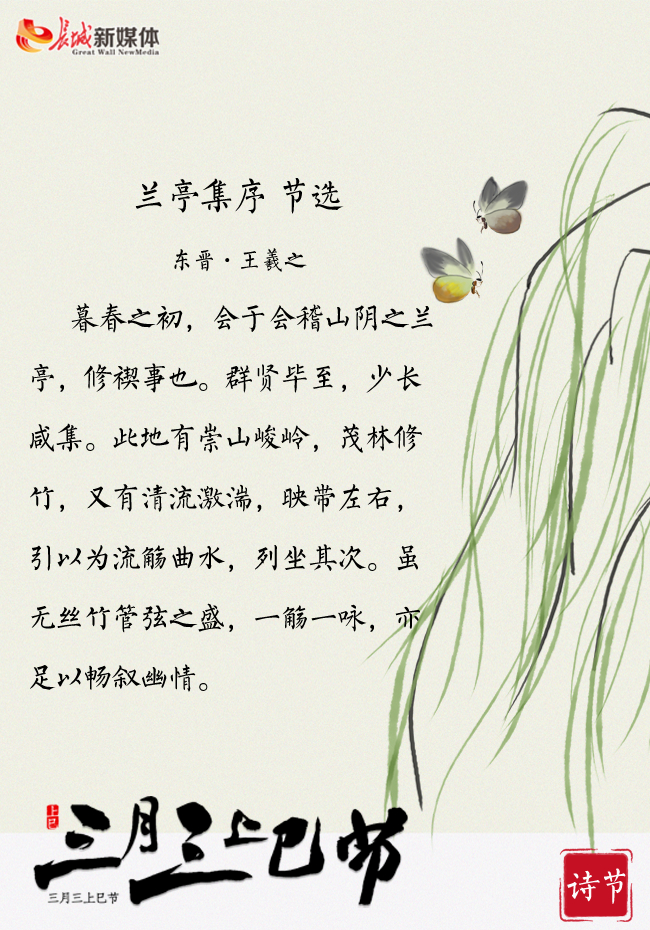 长城新媒体
Great Wall NewMedia
兰亭集序 节选
东晋·王羲之
暮春之初，会于会稽山阴之兰
亭，修禊事也。群贤毕至，少长
咸集。此地有崇山峻岭，茂林修
竹，又有清流激湍，映带左右，
引以为流觞曲水，列坐其次。虽
无丝竹管弦之盛，一觞一咏，亦
足以畅叙幽情。
上巳
三月三上巳节
三月三上巳节
诗节